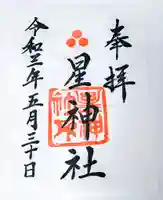 奉拝
星神社
令和三年五月三十日